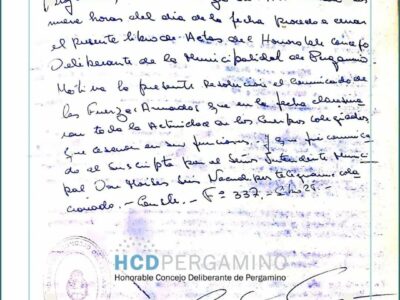 nueve horas del día de la fecha procedo a cerrar
el presente libro de Actas del Honorable Concejo
Deliberante de la Municipalidad de Pergamino.
Motiva la presente Resolución el Comunicado de
las Fuerzas Armadas que en la fecha clausura
ron toda la Actividad en los Cuerpos colegiados
que cesaron en sus funciones. Y que fue comunica
do al suscripto por el Señor Intendente Munici
pal Don por telegrama cola
cionado. - Conste. - Fº 337. -
HCDPERGAMINO
Honorable Concejo Deliberante de Pergamino